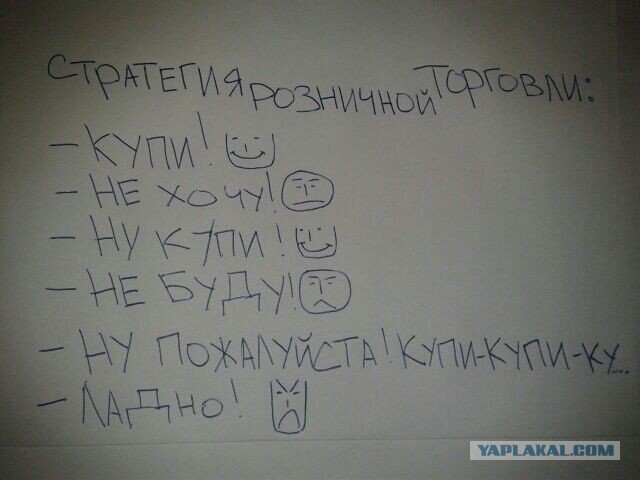 СТРАТЕГИЯ РОЗНИЧНОЙ ТОРГОВЛИ:
- КУПИ!
- НЕ ХОЧУ!
- НУ КУПИ!
- НЕ БУДУ!
- НУ ПОЖАЛУЙСТА! КУПИ-КУПИ-КУ...
- ЛАДНО!
YAPLAKAL.COM